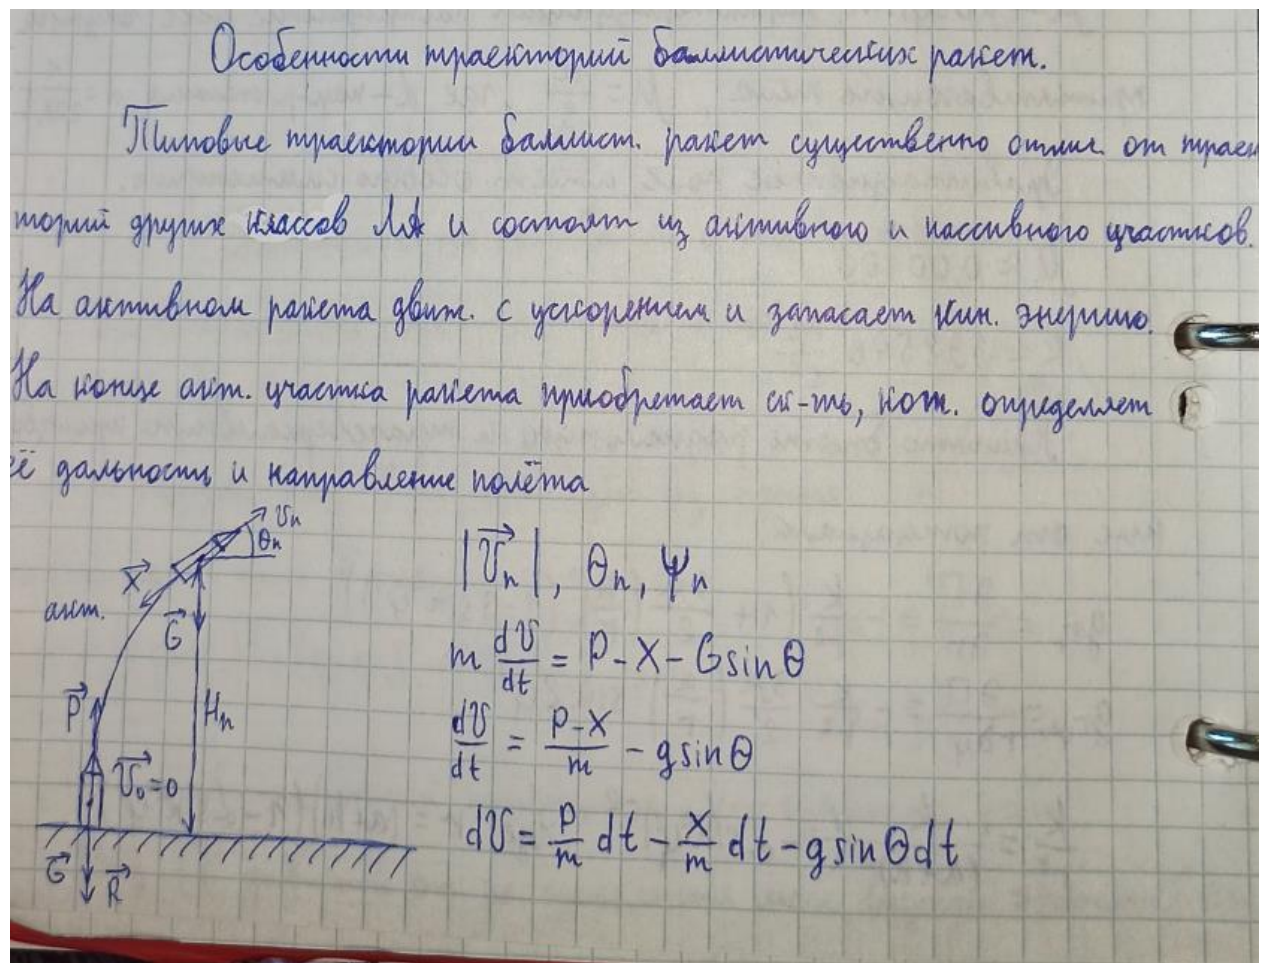 Особенности траекторий баллистических ракет.
Типовые траектории баллист. ракет существенно отлич. от траек
торий других классов ЛА и состоят из активного и пассивного участков.
На активном ракета движ. с ускорением и запасает кин. энергию.
На конце акт. участка ракета приобретает ск-ть, кот. определяет
её дальность и направление полёта
Vn
θn
X
акт.
G
P
Hn
V₀=0
G
R
|Vn|, θn, ψn
m dV/dt = P - X - G sin θ
dV/dt = P-X/m - g sin θ
dV = P/m dt - X/m dt - g sin θ dt